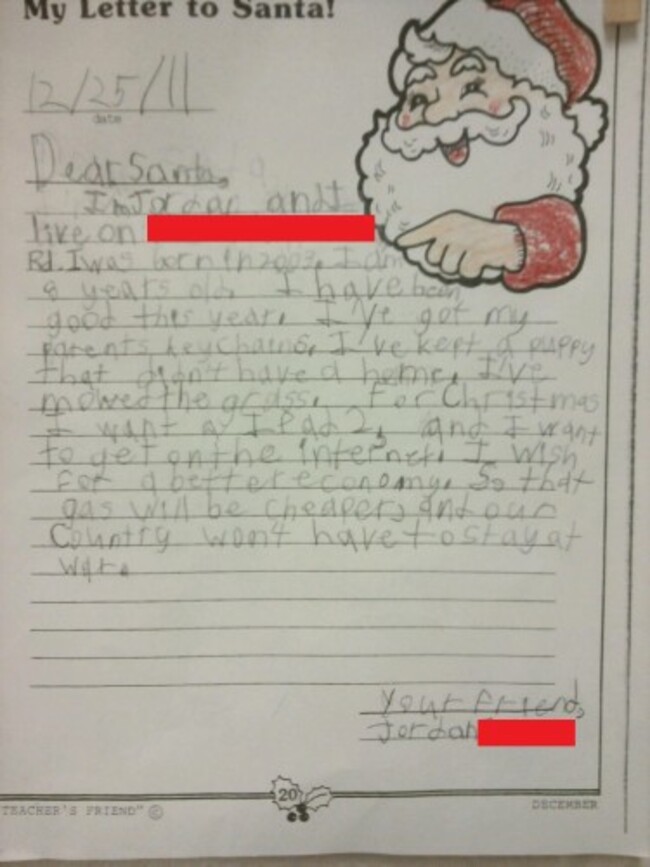 My Letter to Santa!
12/25/11
date
Dear Santa,
Im Jordan and I
live on
Rd. I was born in 2003. I am
8 years old. I have been
good this year. I've got my
parents keychains. I've kept a puppy
that didn't have a home. I've
mowed the grass. For Christmas
I want a IPad 2, and I want
to get on the internet. I wish
for a better economy. So that
gas will be cheaper, and our
Country won't have to stay at
war.
Your friend,
Jordan
20
TEACHER'S FRIEND™ ©
DECEMBER